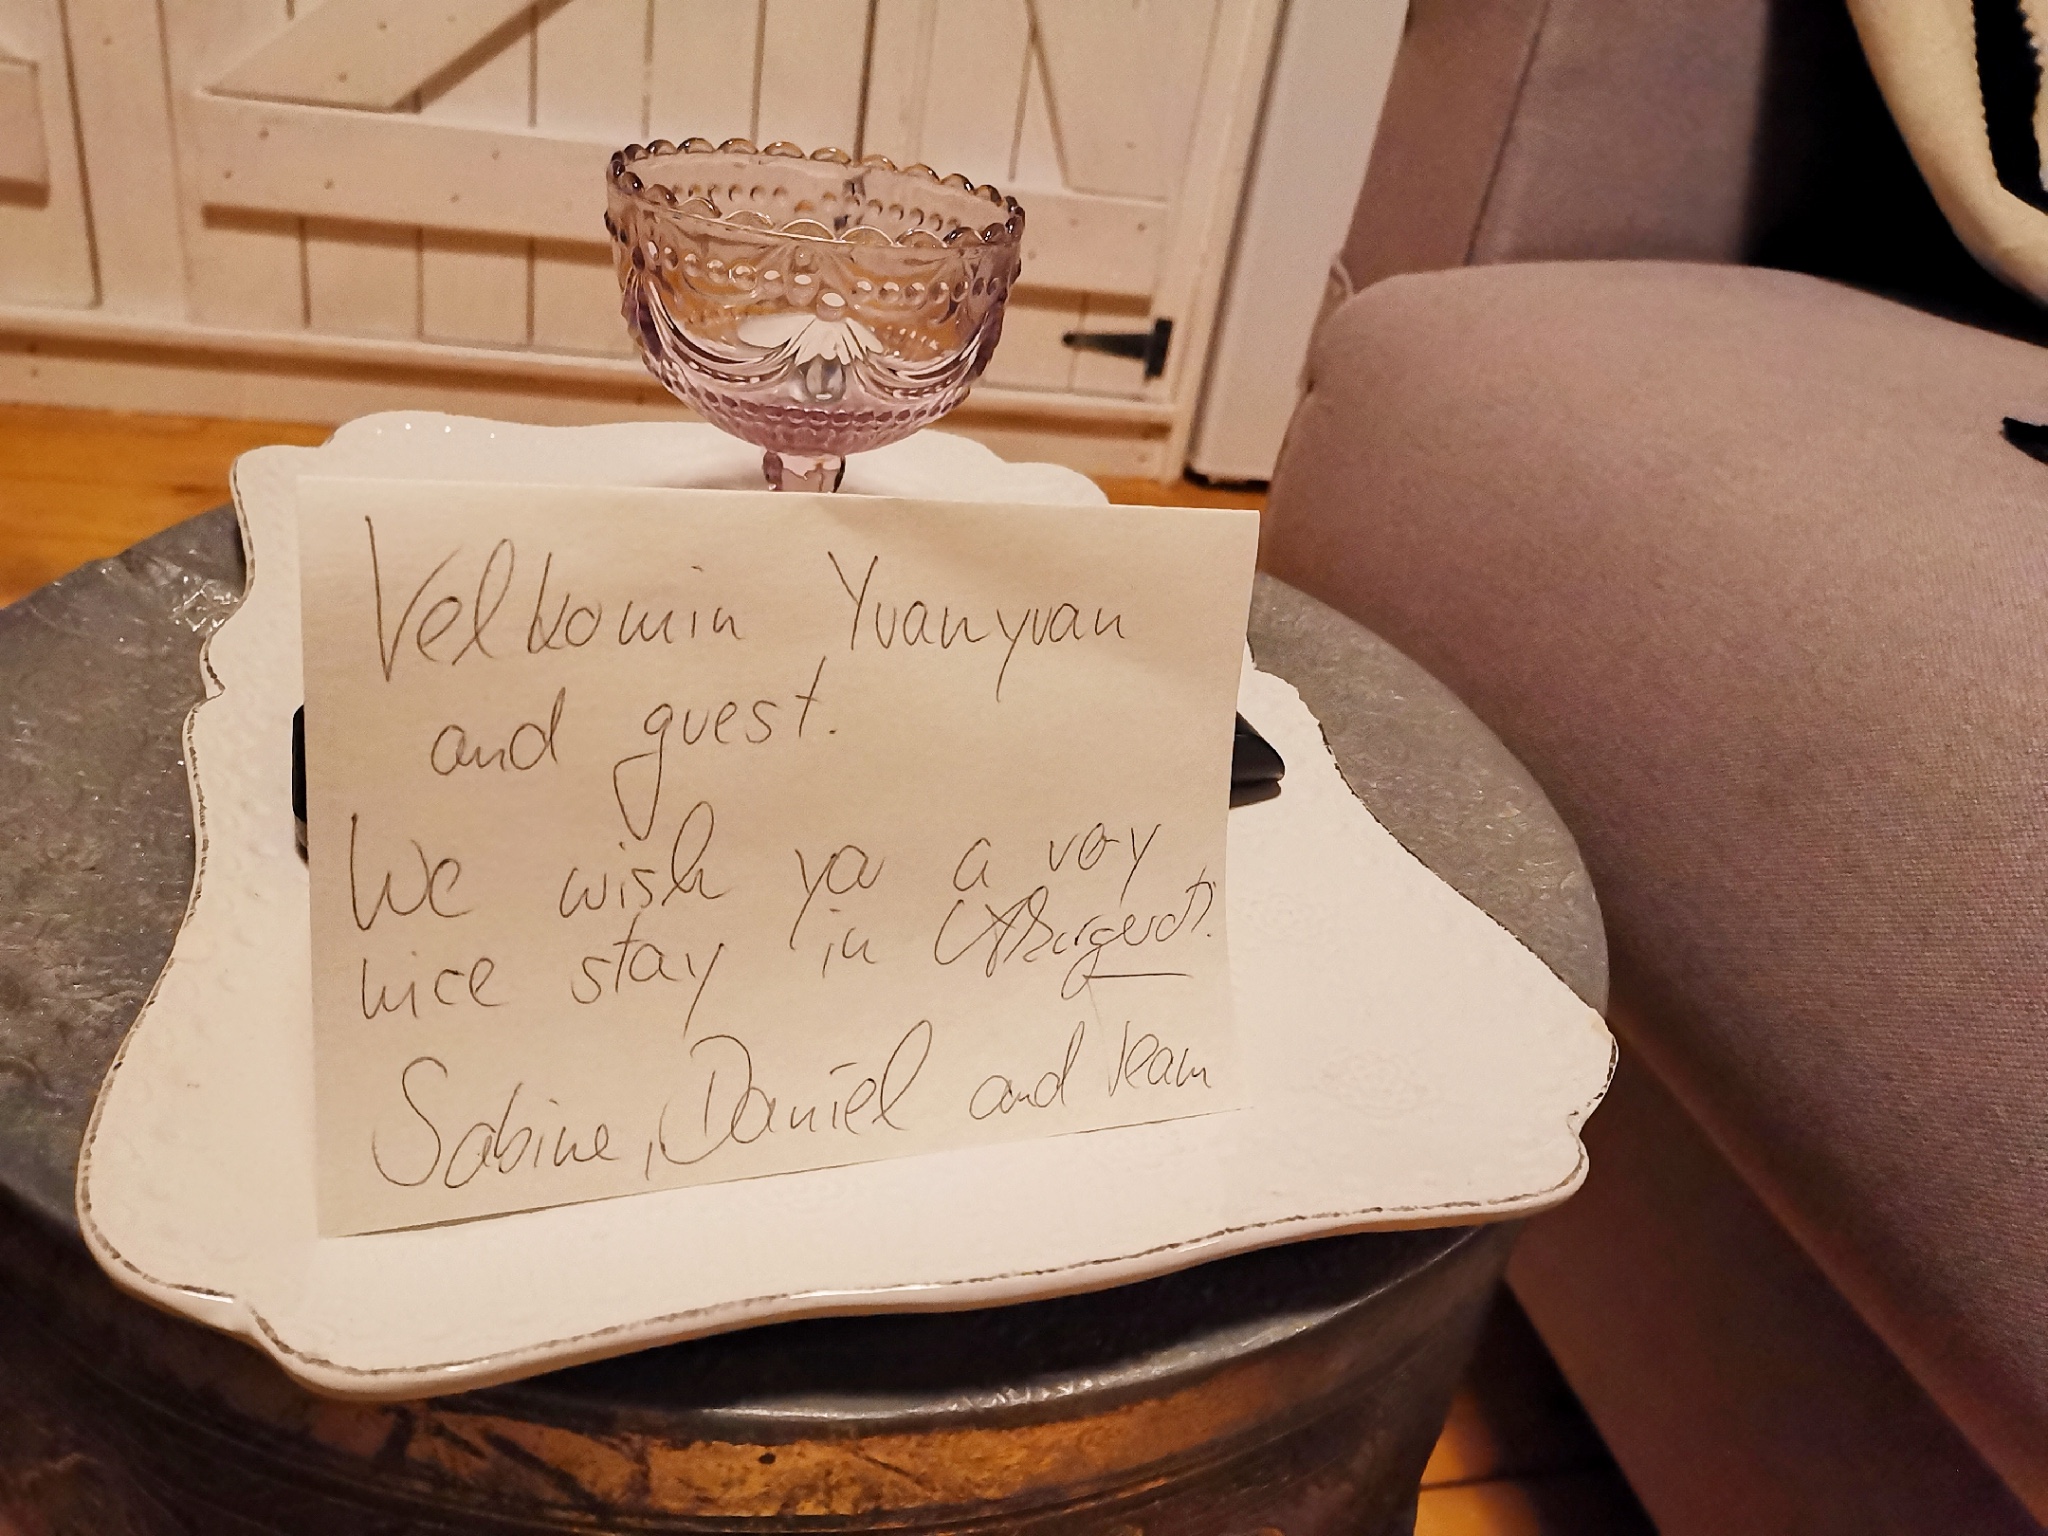 Velkomin Yuanyuan
and guest.
We wish you a very
nice stay in
Sabine, Daniel and team